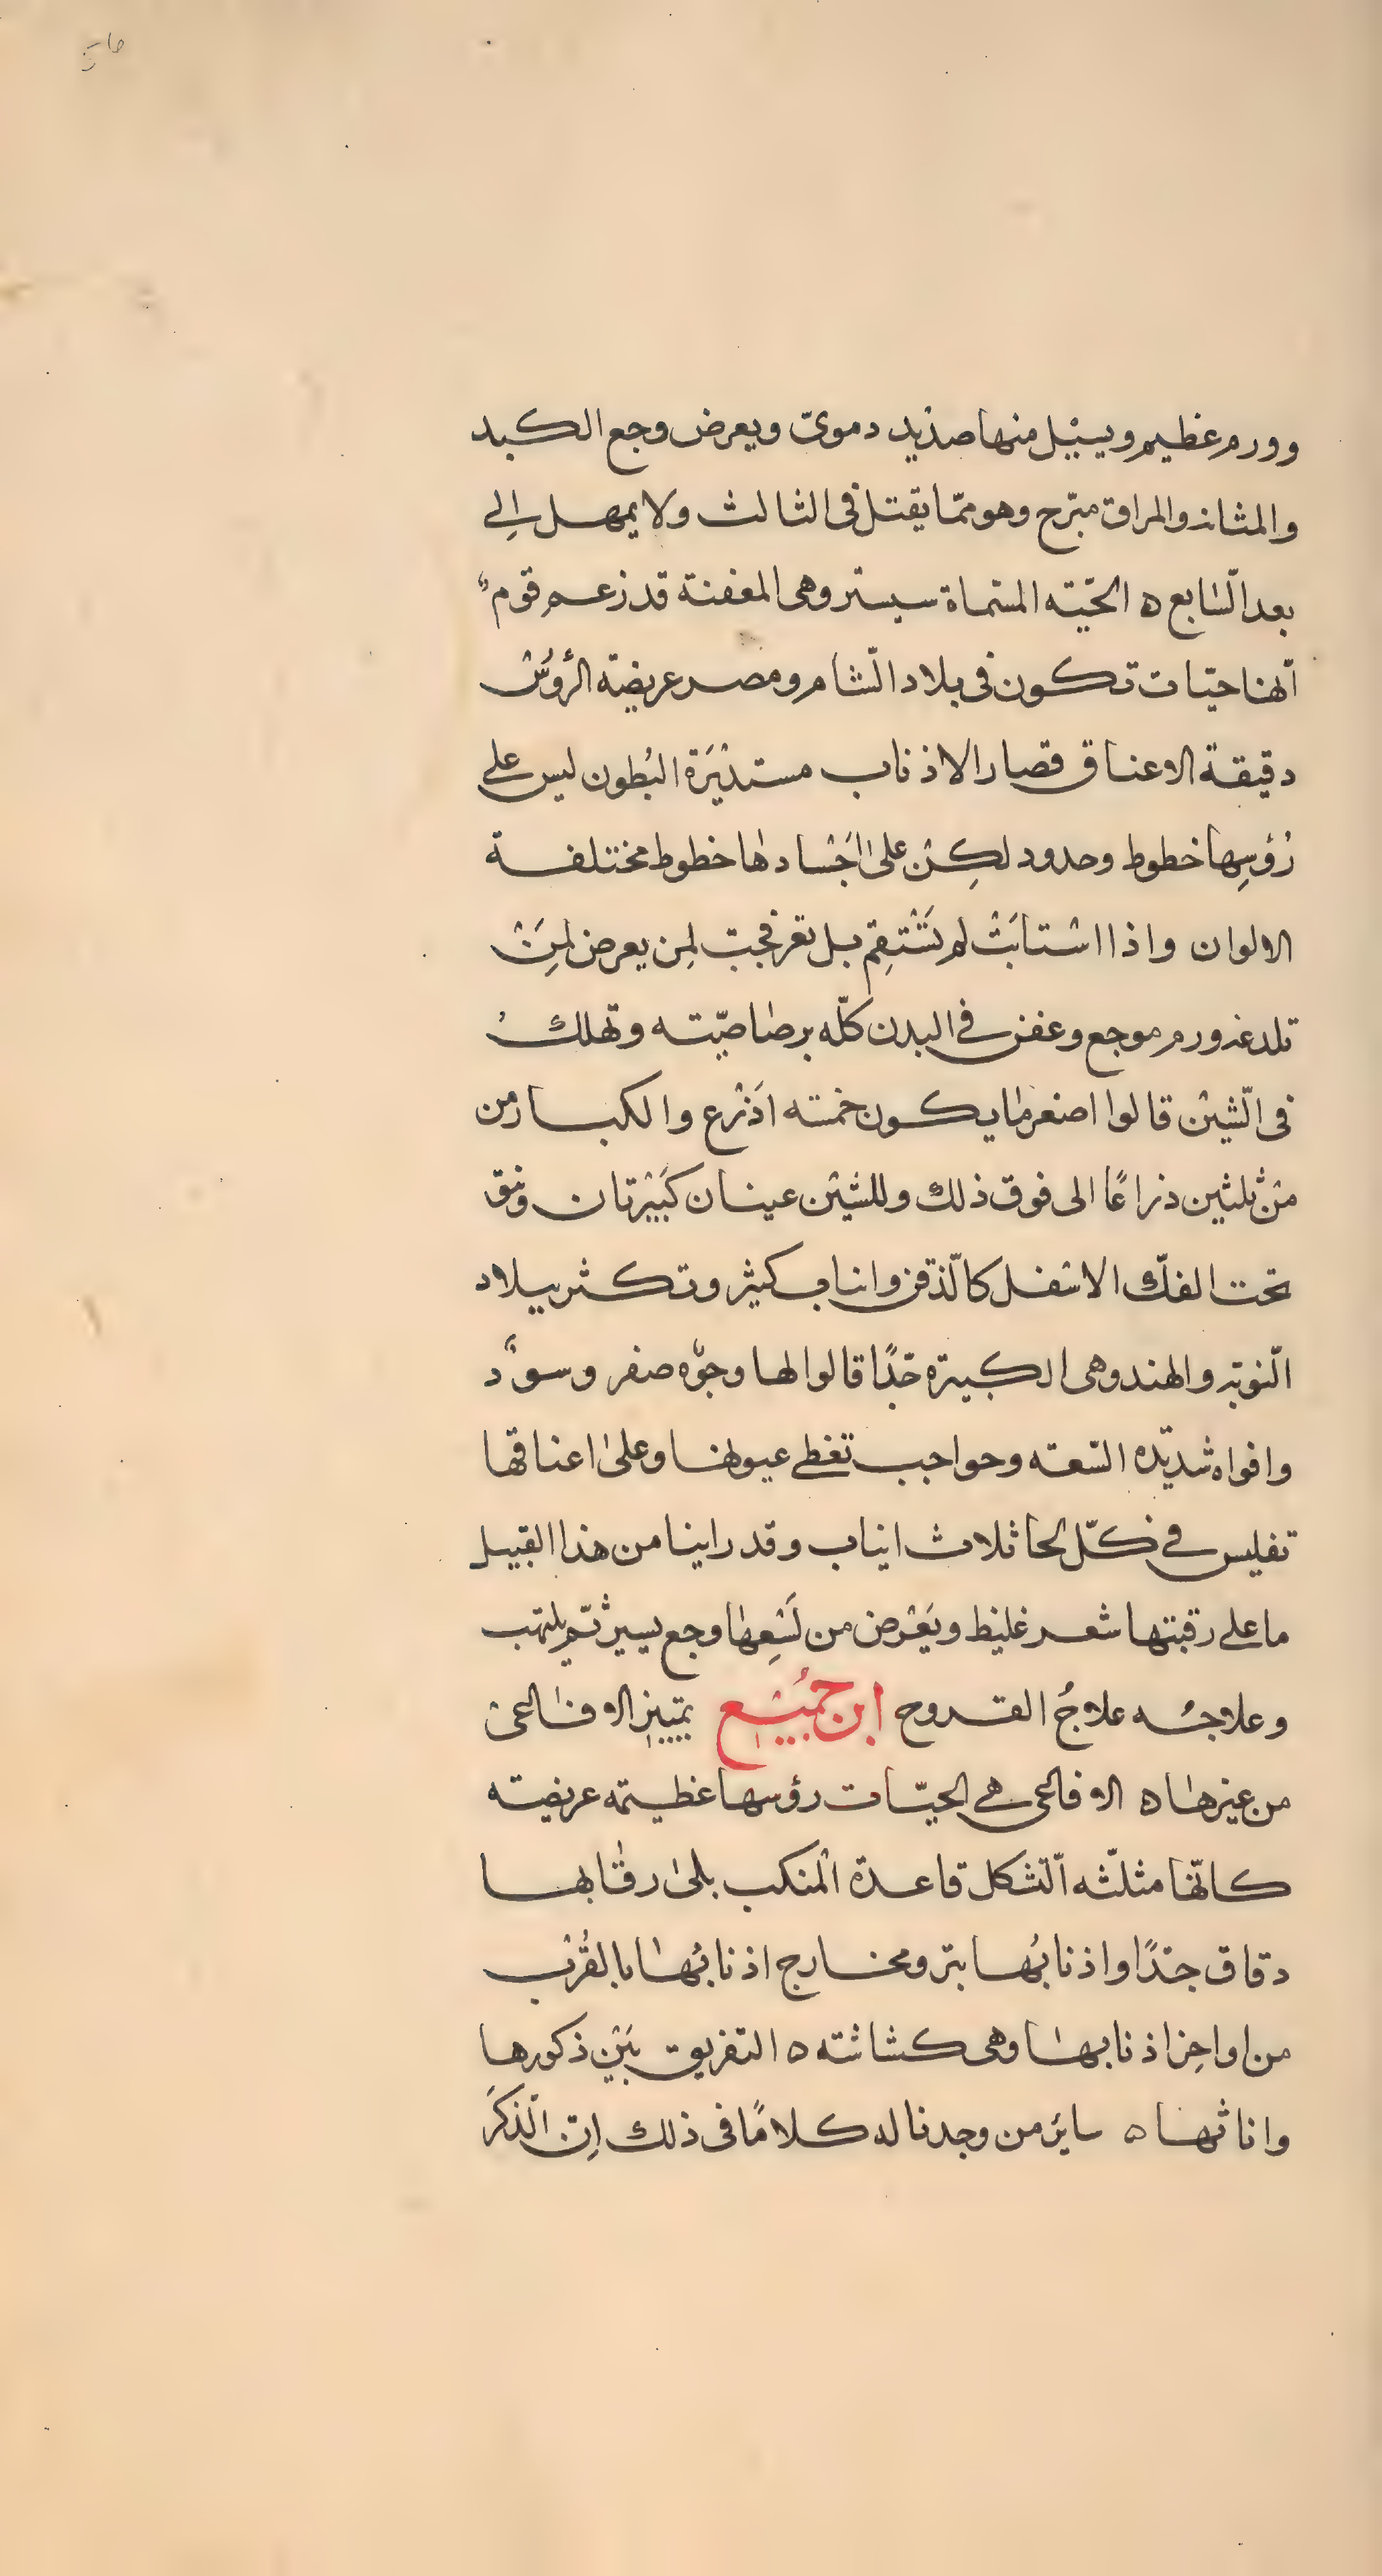 وورم عظيم ويسيل منها صديد دموىّ ويعرض وجع الكبد
والمثانه والمراق مبرّح وهو ممّا يقتل فى الثالث ولا يمهل إلى
بعد السّابع ه الحيّته المسّماة سيستر وهى المعفنة قد زعم قوم
انّها حيّات تكون فى بلاد الشّام ومصر عريضة الرُّؤُس
دقيقة الاعناق قصار الاذناب مستديَرة البُطون ليس على
رُؤسِها خطوط وحدود لكِن على اَجْسادها خطوط مختلفة
الالوان واذا اشتابَتْ لم تَسْتقِم بل تعرفجت لمِن يعرض لمِنَ
تلدغه ورم موجع وعفن فى البدن كلّه برصاصيّته وتهلك
فى الّشيْن قالوا اصغر ما يكون خمسته اَذْرع والكبار من
منْ ثلثين ذراعًا الى فوق ذلك وللشّيْن عينان كَبيْرتان
تحت الفكّ الاسفل كالّذقن وانياب كثيْر وتكثر ببلاد
النّوبّه والهند وهى الكبيرّه جّدًا قالوا لها وجوْه صفر وسوْد
وافواه شديّده السّعّه وحواجب تغطى عيونها وعلى اعناقها
تفليس فى كلّ لحا ثلاث انياب وقد راينا من هذا القبيل
ما على رقبتها شعر غليظ ويَعْرض من لَسْعِها وجع يسيْر ثمّ يلتهب
وعلاجُه علاجُ القروح ابن جميْع بتمييز الافاعى
من غيرها ه الافاعى هى الحيّات رؤسها عظيمّه عريضته
كانّها مثلثّه الّشكل قاعدّة المنكب بلى رقابها
دقاق جّدًا واذنابُها بتر ومخارج اذنابُها بالقُرْب
من اواخِر اذنابها وهى كشاشته ه التفريق بَيْن ذكورها
واناثها ه ساير من وجدنا له كلامًا فى ذلك اِنّ الذّكَر